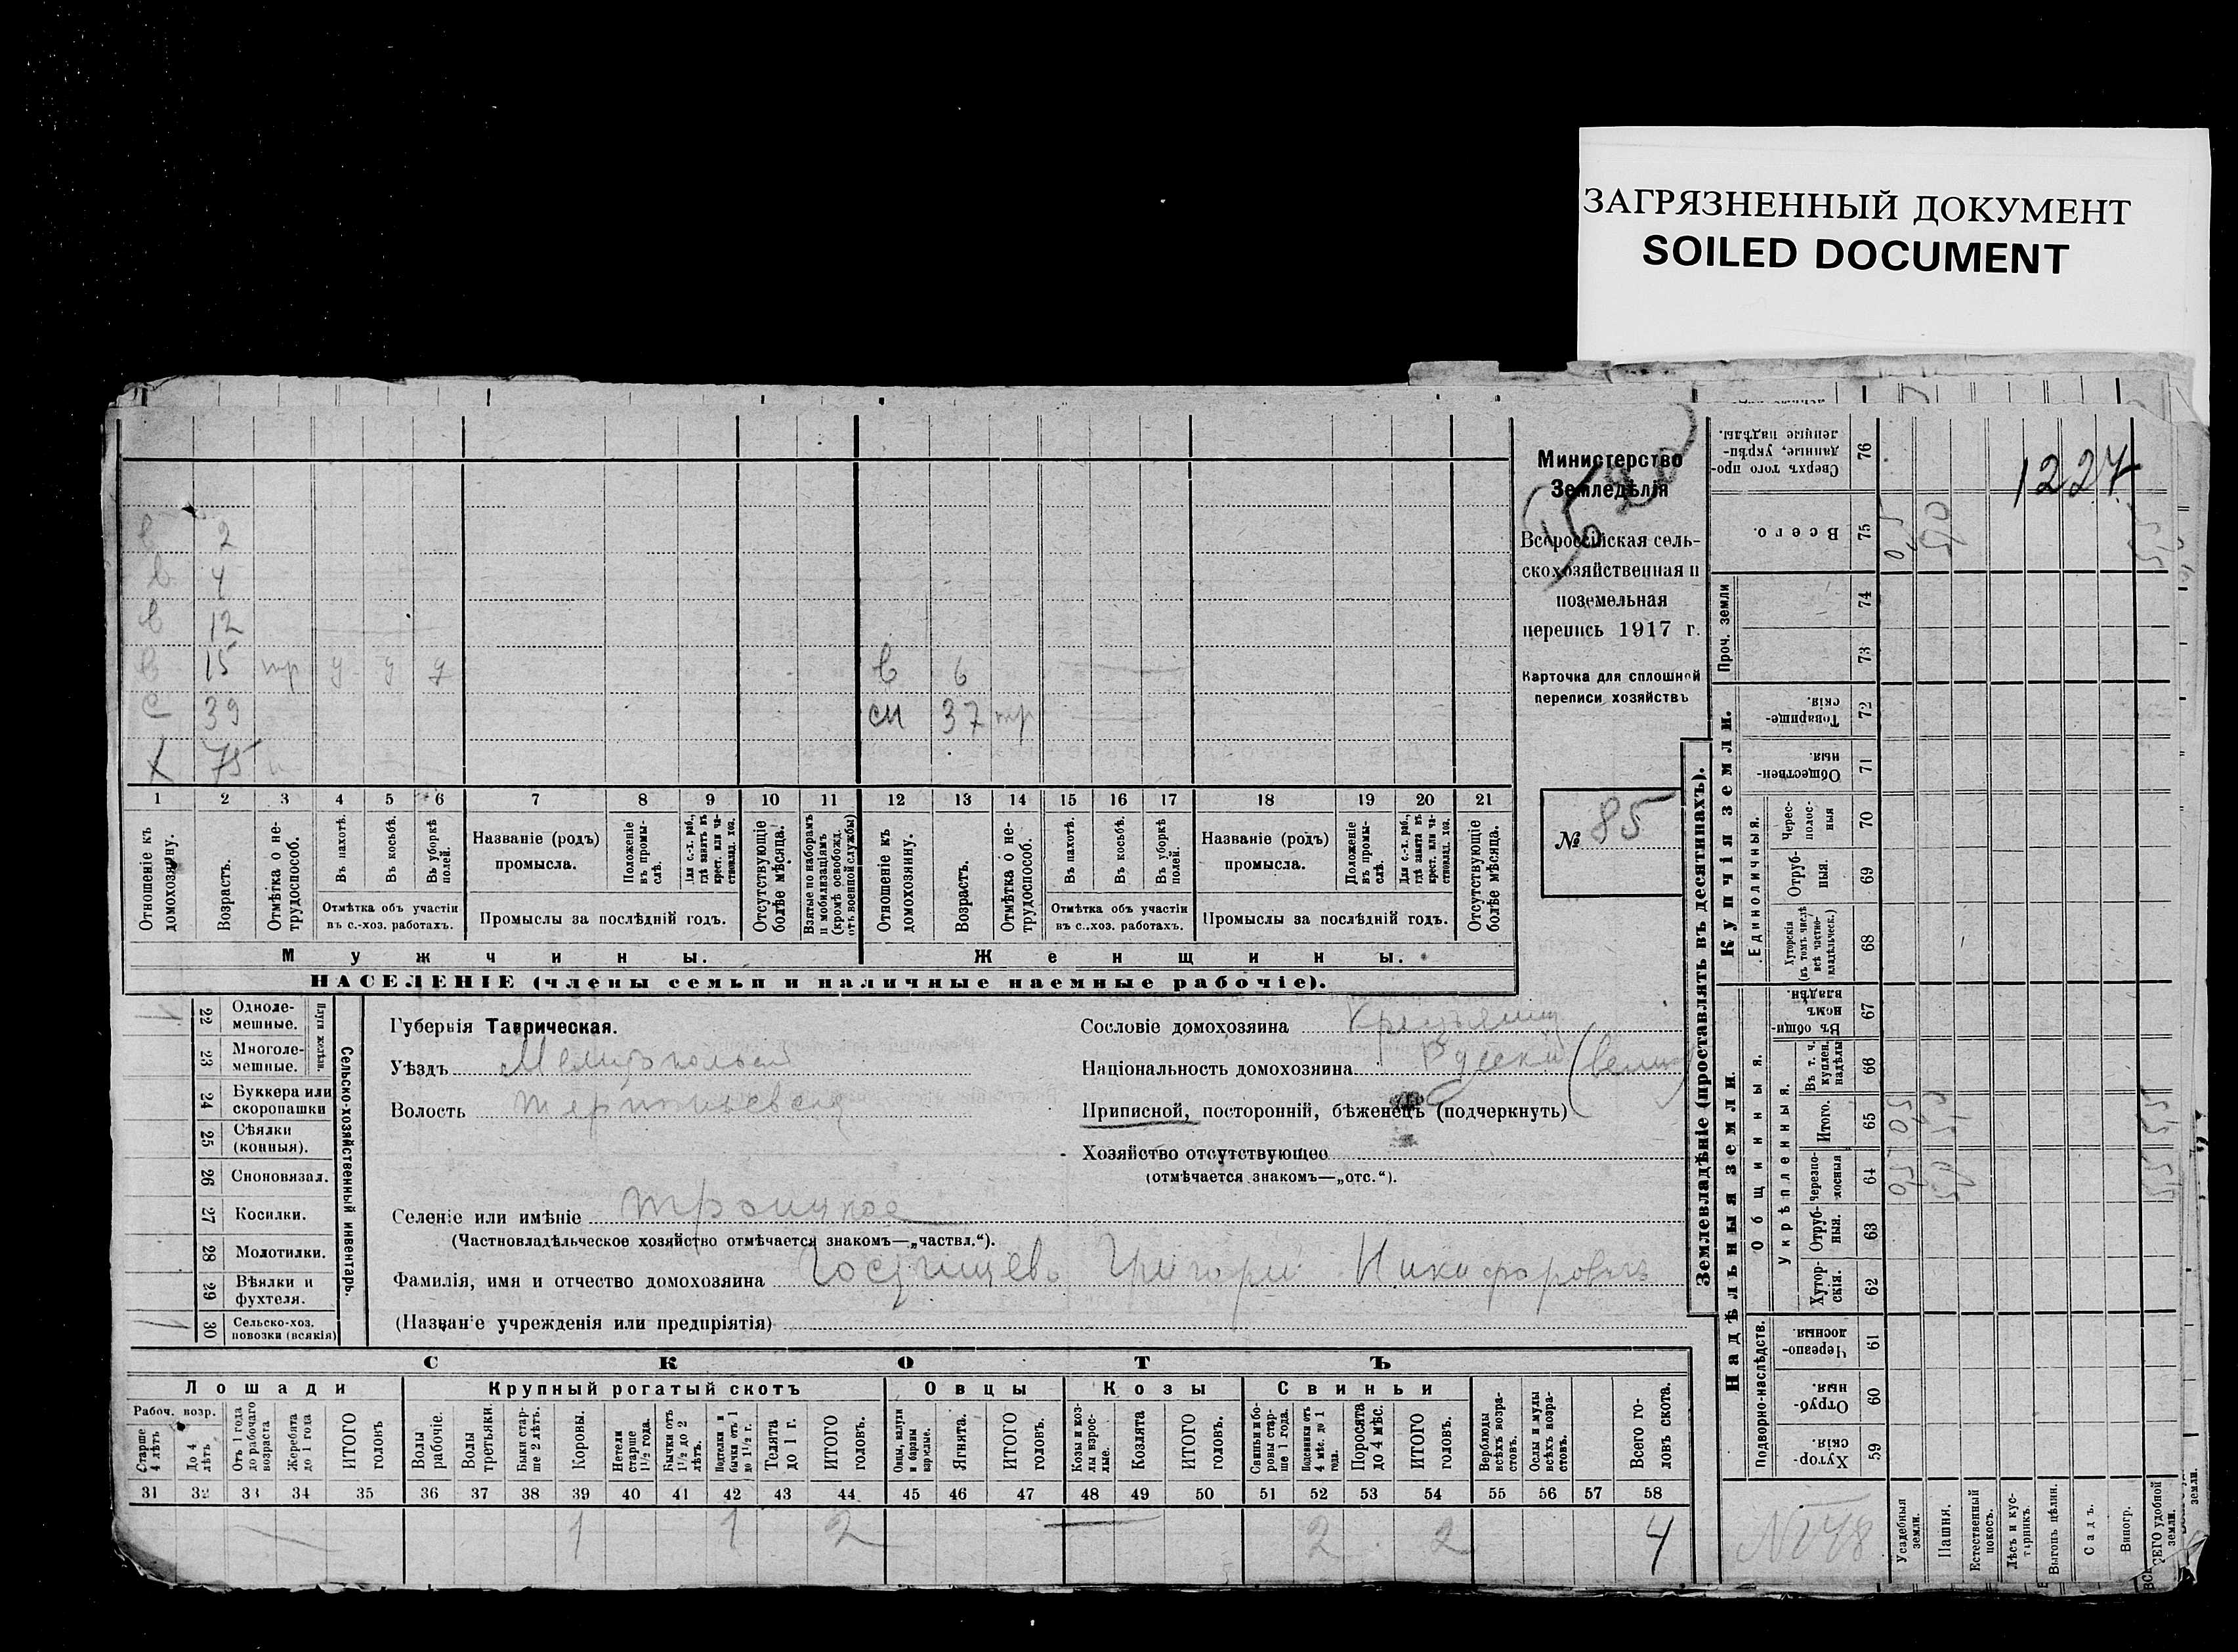 ЗАГРЯЗНЕННЫЙ ДОКУМЕНТ
SOILED DOCUMENT
1227
Министерство
Земледѣлія
Всероссійская сель-
скохозяйственная и
поземельная
перепись 1917 г.
Карточка для сплошной
переписи хозяйствъ
№ 85
в 2
в 4
в 12
в 15 тр у у у в 6
с 39 сн 37 тр
Х 75
1 2 3 4 5 6 7 8 9 10 11 12 13 14 15 16 17 18 19 20 21
Отношеніе къ домохозяину.
Возрастъ.
Отмѣтка о не-трудоспособ.
Въ пахотѣ.
Въ косьбѣ.
Въ уборкѣ полей.
Отмѣтка объ участіи
въ с.-хоз. работахъ.
Названіе (родъ)
промысла.
Положеніе въ промы-слѣ.
Для с.-х. раб., гдѣ занятъ въ крест. или ча-стновлад. хоз.
Промыслы за послѣдній годъ.
Отсутствующіе болѣе мѣсяца.
Взятые по наборамъ и мобилизаціямъ (кромѣ освобожд. отъ военной службы)
Отношеніе къ домохозяину.
Возрастъ.
Отмѣтка о не-трудоспособ.
Въ пахотѣ.
Въ косьбѣ.
Въ уборкѣ полей.
Отмѣтка объ участіи
въ с.-хоз. работахъ.
Названіе (родъ)
промысла.
Положеніе въ промы-слѣ.
Для с.-х. раб., гдѣ занятъ въ крест. или ча-стновлад. хоз.
Промыслы за послѣдній годъ.
Отсутствующіе болѣе мѣсяца.
Мужчины. Женщины.
НАСЕЛЕНІЕ (члены семьи и наличные наемные рабочіе).
22 Одноле-мешные.
23 Многоле-мешные.
Плуги желѣзн.
24 Буккера или скоропашки
25 Сѣялки (конныя).
26 Сноповязал.
27 Косилки.
28 Молотилки.
29 Вѣялки и фухтеля.
30 Сельско-хоз. повозки (всякія)
Сельско-хозяйственный инвентарь.
Губернія Таврическая.
Уѣздъ Мелитопольск
Волость
Сословіе домохозяина
Національность домохозяина Русскій
Приписной, посторонній, бѣженецъ (подчеркнуть)
Хозяйство отсутствующее
(отмѣчается знакомъ—„отс.“).
Селеніе или имѣніе Троицкое
(Частновладѣльческое хозяйство отмѣчается знакомъ—„частвл.“).
Фамилія, имя и отчество домохозяина Гостищевъ Григорій Никифоровичъ
(Названіе учрежденія или предпріятія)
СКОТЪ
Лошади Крупный рогатый скотъ Овцы Козы Свиньи
Рабоч. возр.
Старше 4 лѣтъ
До 4 лѣтъ
Отъ 1 года до рабочаго возраста
Жеребята до 1 года
ИТОГО головъ
Волы рабочіе.
Волы третьяки.
Быки стар-ше 2 лѣтъ.
Коровы.
Нетели старше 1½ года.
Бычки отъ 1½ до 2 лѣтъ.
Подтелки и бычки отъ 1 до 1½ г.
Телята до 1 г.
ИТОГО головъ.
Овцы, валухи и бараны взрослые.
Ягнята.
ИТОГО головъ.
Козы и коз-лы взрос-лые.
Козлята
ИТОГО головъ.
Свиньи и бо-ровы стар-ше 1 года.
Подсвинки отъ 4 мѣс. до 1 года.
Поросята до 4 мѣс.
ИТОГО головъ.
Верблюды всѣхъ возра-стовъ.
Ослы и мулы всѣхъ возра-стовъ.
Всего го-ловъ скота.
31 32 33 34 35 36 37 38 39 40 41 42 43 44 45 46 47 48 49 50 51 52 53 54 55 56 57 58
1 1 2 2 2 4
Землевладѣніе (проставлять въ десятинахъ).
Надѣльныя земли.
Купчія земли.
Проч. земли
Подворно-наслѣдств.
Общинныя.
Укрѣпленныя.
Единоличныя.
Хутор-скія. 59
Отруб-ныя. 60
Черезпо-лосныя. 61
Хутор-скія. 62
Отруб-ныя. 63
Черезпо-лосныя 64
Итого. 65
Въ т. ч. куплен. надѣлы 66
Въ общин-номъ владѣн. 67
Хуторскія (въ томъ числѣ всѣ частно-владѣльческ.) 68
Отруб-ныя 69
Черес-полос-ныя 70
Обществен-ныя. 71
Товарище-скія. 72
73
74
Всего. 75
Сверхъ того про-данные, укрѣп-ленные надѣлы. 76
Усадебныя земли.
Пашня.
Естественный покосъ.
Лѣсъ и кус-тарникъ.
Выгонъ цѣлин.
Садъ.
Виногр.
ВСЕГО удобной земли.